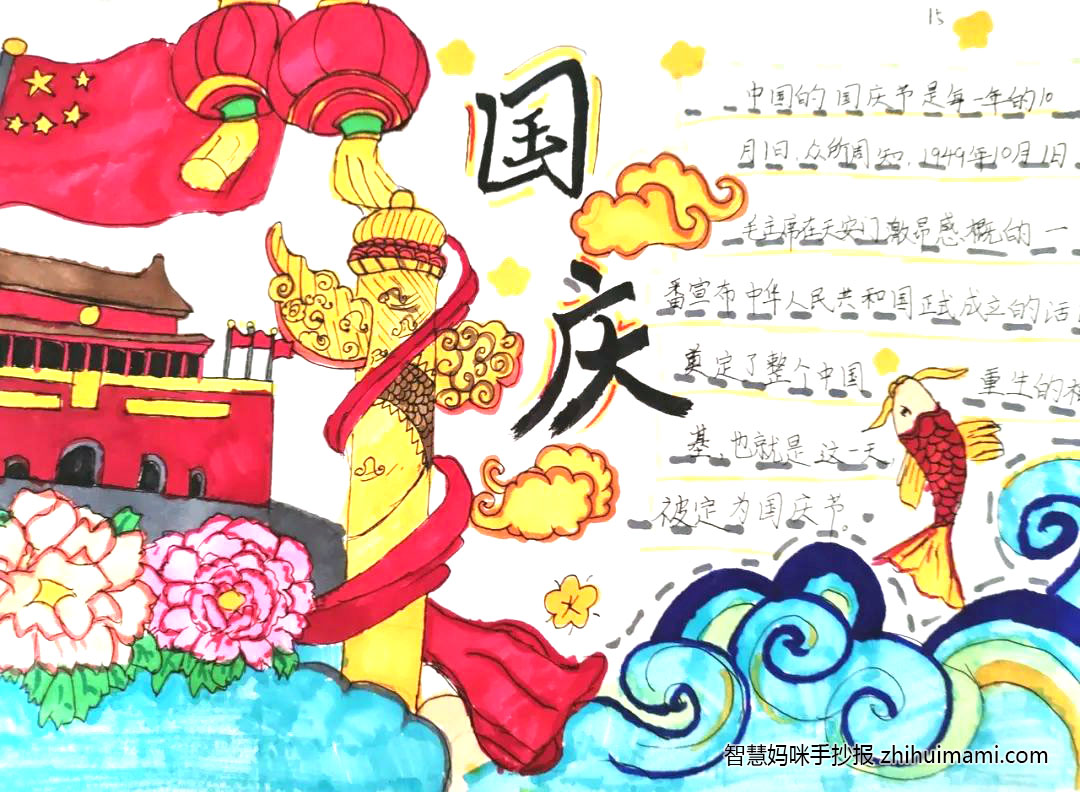 15
国庆
中国的国庆节是每一年的10
月1日,众所周知,1949年10月1日
毛主席在天安门激昂感概的一
番宣布中华人民共和国正式成立的话,
奠定了整个中国 重生的根
基,也就是这一天,
被定为国庆节。
智慧妈咪手抄报 zhihuimami.com